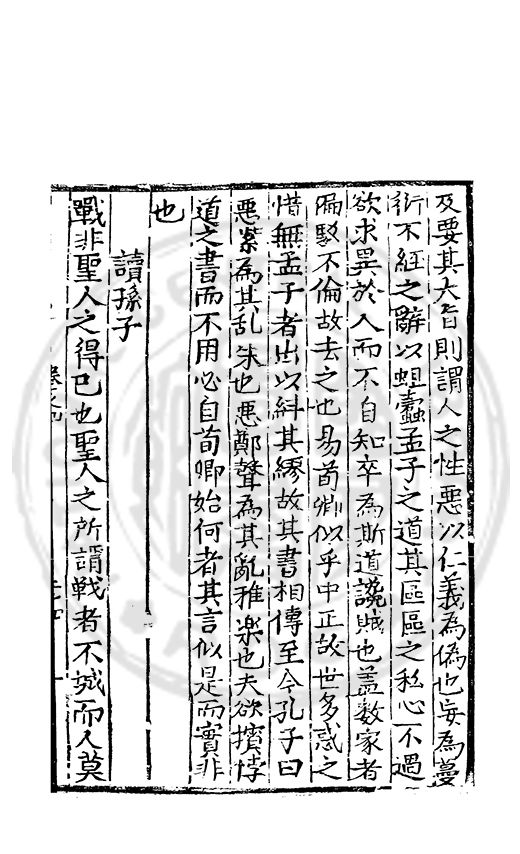 及要其大旨則謂人之性惡以仁義為偽也妄為蔓
衍不經之辭以蛆蠹孟子之道其區區之私心不過
欲求異於人而不自知卒為斯道讒賊也盖數家者
偏駮不倫故去之也易荀卿似乎中正故世多惑之
惜無孟子者出以糾其繆故其書相傳至今孔子曰
惡紫為其乱朱也惡鄭聲為其亂雅楽也夫欲擯悖
道之書而不用必自荀卿始何者其言似是而實非
也
讀孫子
戰非聖人之得已也聖人之所謂戰者不城而人莫